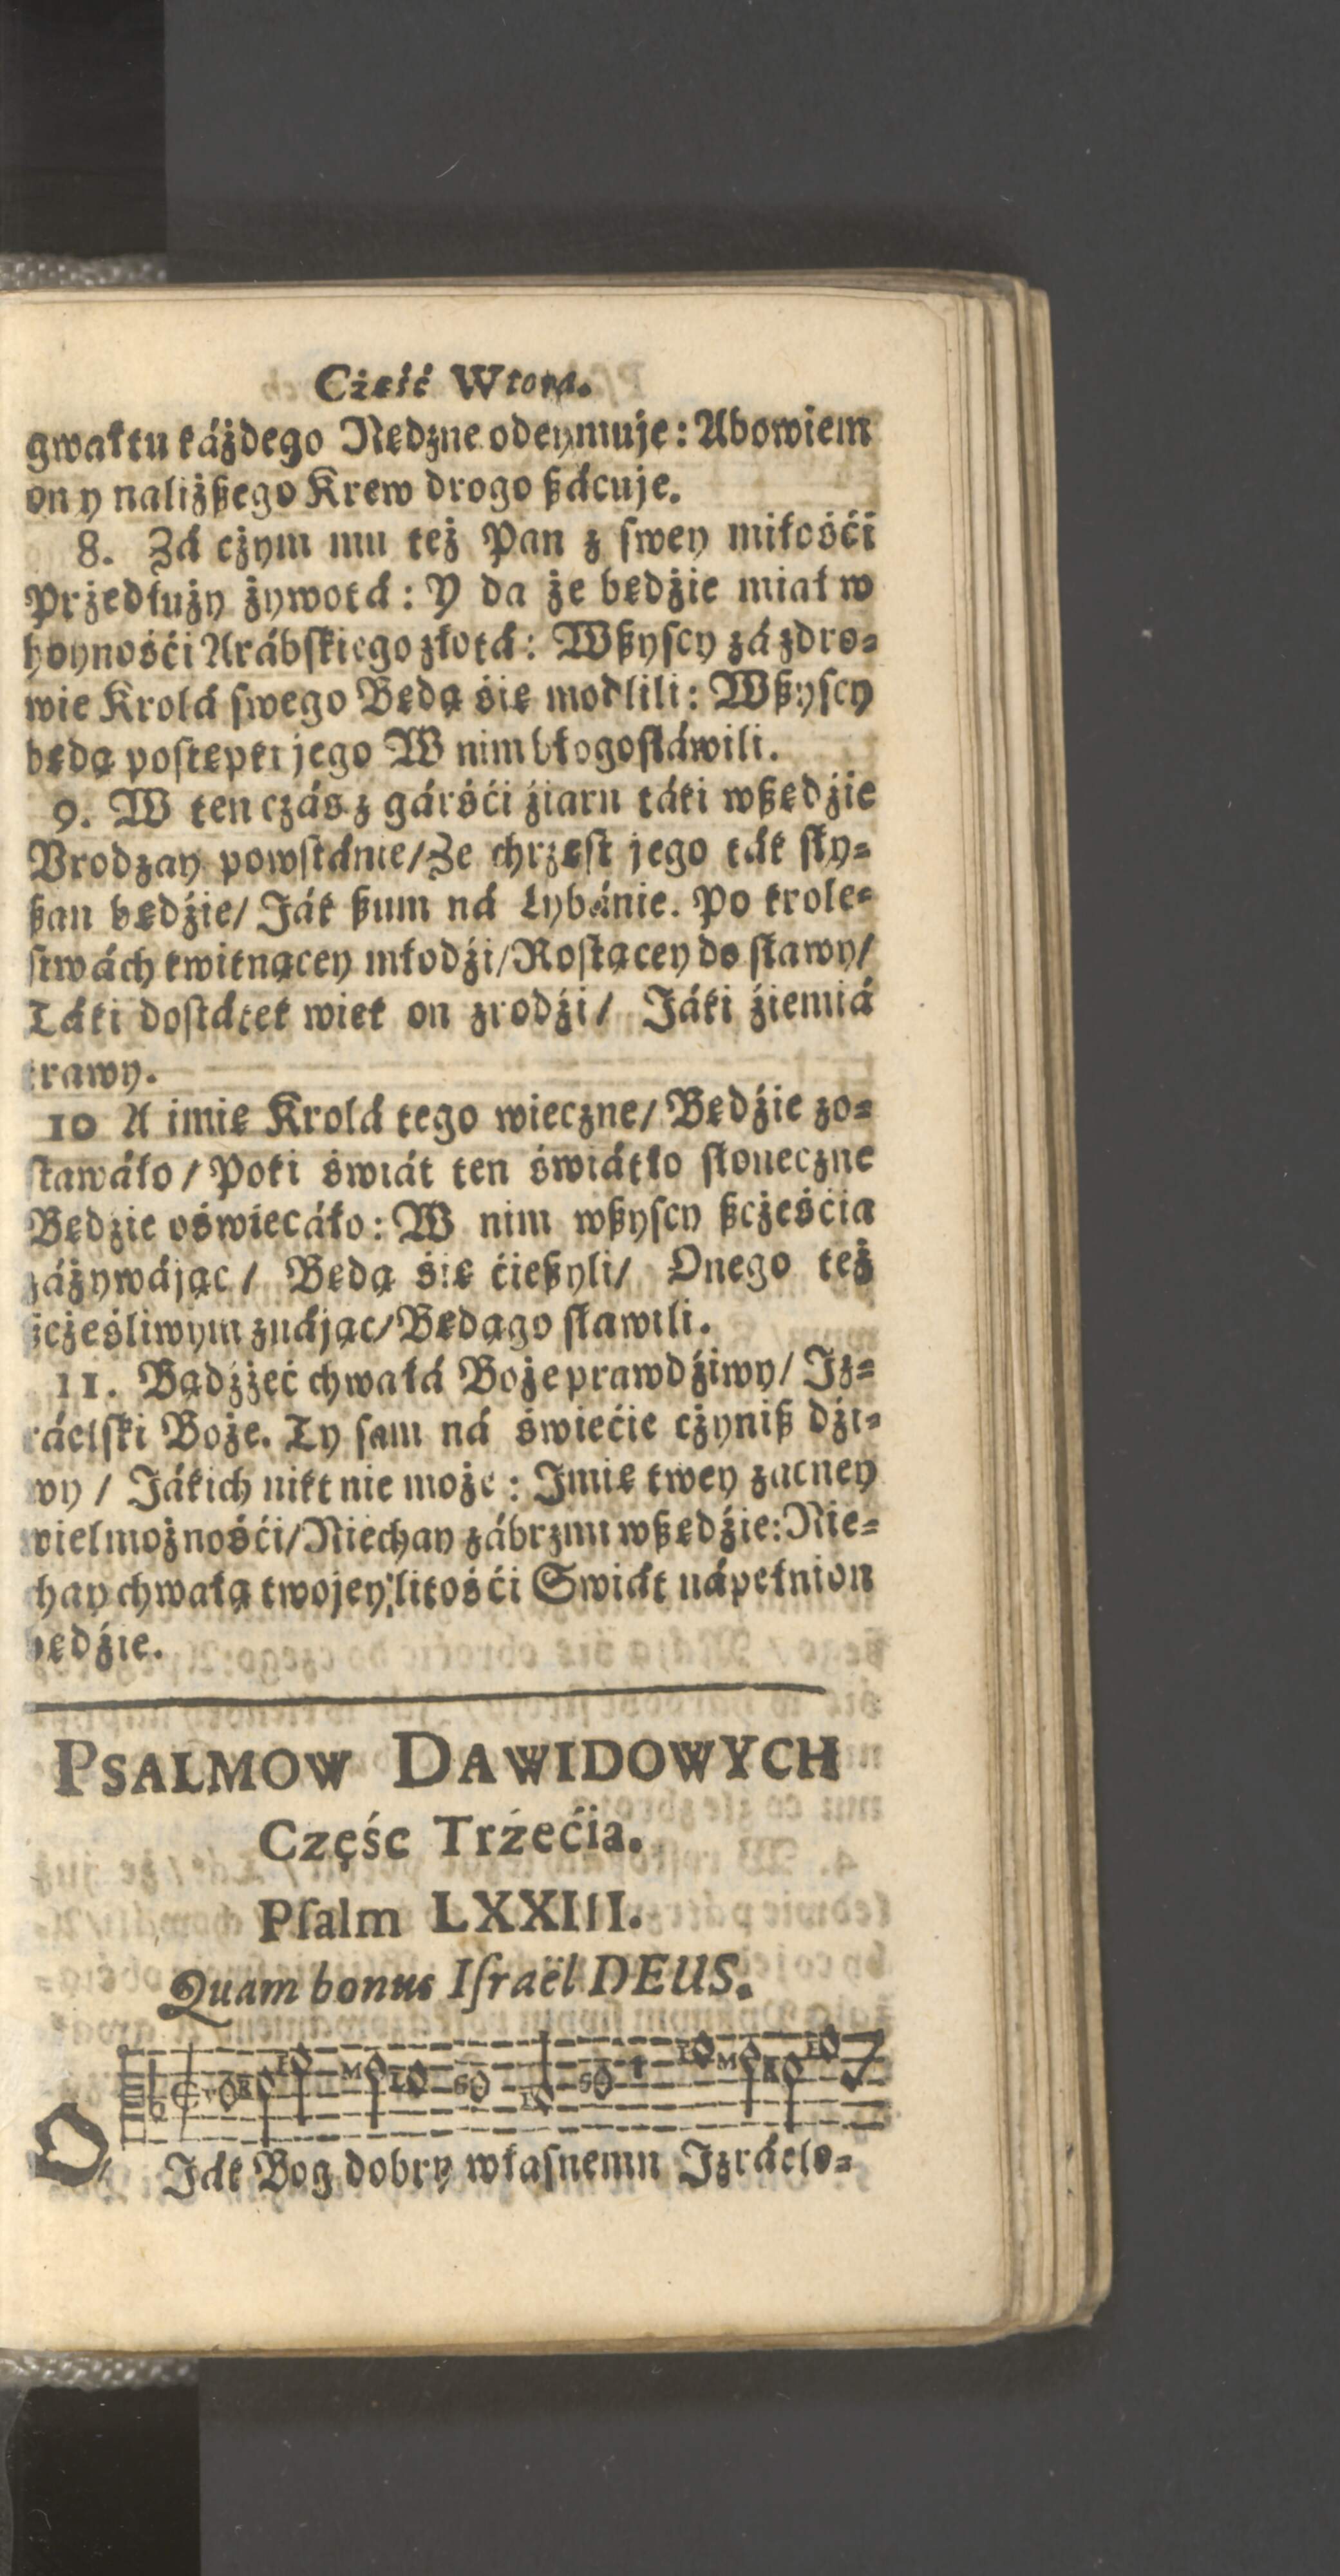 Część Wtora.
gwałtu káżdego Nędzne odeymuje: Abowiem
on y naliżßego Krew drogo ßácuje.
8. Zá cżym mu też Pan z swey miłośći
Przedłuży żywotá: Y da że będźie miał w
hoynośći Arábskiego złotá: Wßyscy zá zdro⸗
wie Krolá swego Będą śię modlili: Wßyscy
będą postępki jego W nim błogosłáwili.
9. W ten czás z gárśći źiarn táki wßędźie
Vrodzay powstánie/ Ze chrzęst jego ták sły⸗
ßan będźie/ Ják ßum ná Lybánie. Po krole⸗
stwách kwitnącey młodźi/ Rostącey do sławy/
Táki dostátek wiek on zrodźi/ Jáki źiemiá
trawy.
10 A imię Krolá tego wieczne/ Będźie zo⸗
stawáło/ Poki świát ten świátło słoneczne
Będzie oświecáło: W nim wßyscy ßcżeśćia
záżywájąc/ Będą śię ćießyli/ Onego też
ßcżęśliwym znájąc/ Będą go sławili.
11. Bądźżeć chwałá Boże prawdźiwy/ Jz⸗
ráelski Boże. Ty sam ná świećie cżyniß dźi⸗
wy/ Jákich nikt nie może: Jmię twey zacney
wielmożnośći/ Niechay zábrzmi wßędźie: Nie⸗
chay chwałą twojey litośći Swiát nápełnion
będźie.
PSALMOW DAWIDOWYCH
Częśc Trźećia.
Pſalm LXXIII.
Quam bonus Iſraël DEUS.
O Ják Bog dobry własnemu Jzráelo⸗